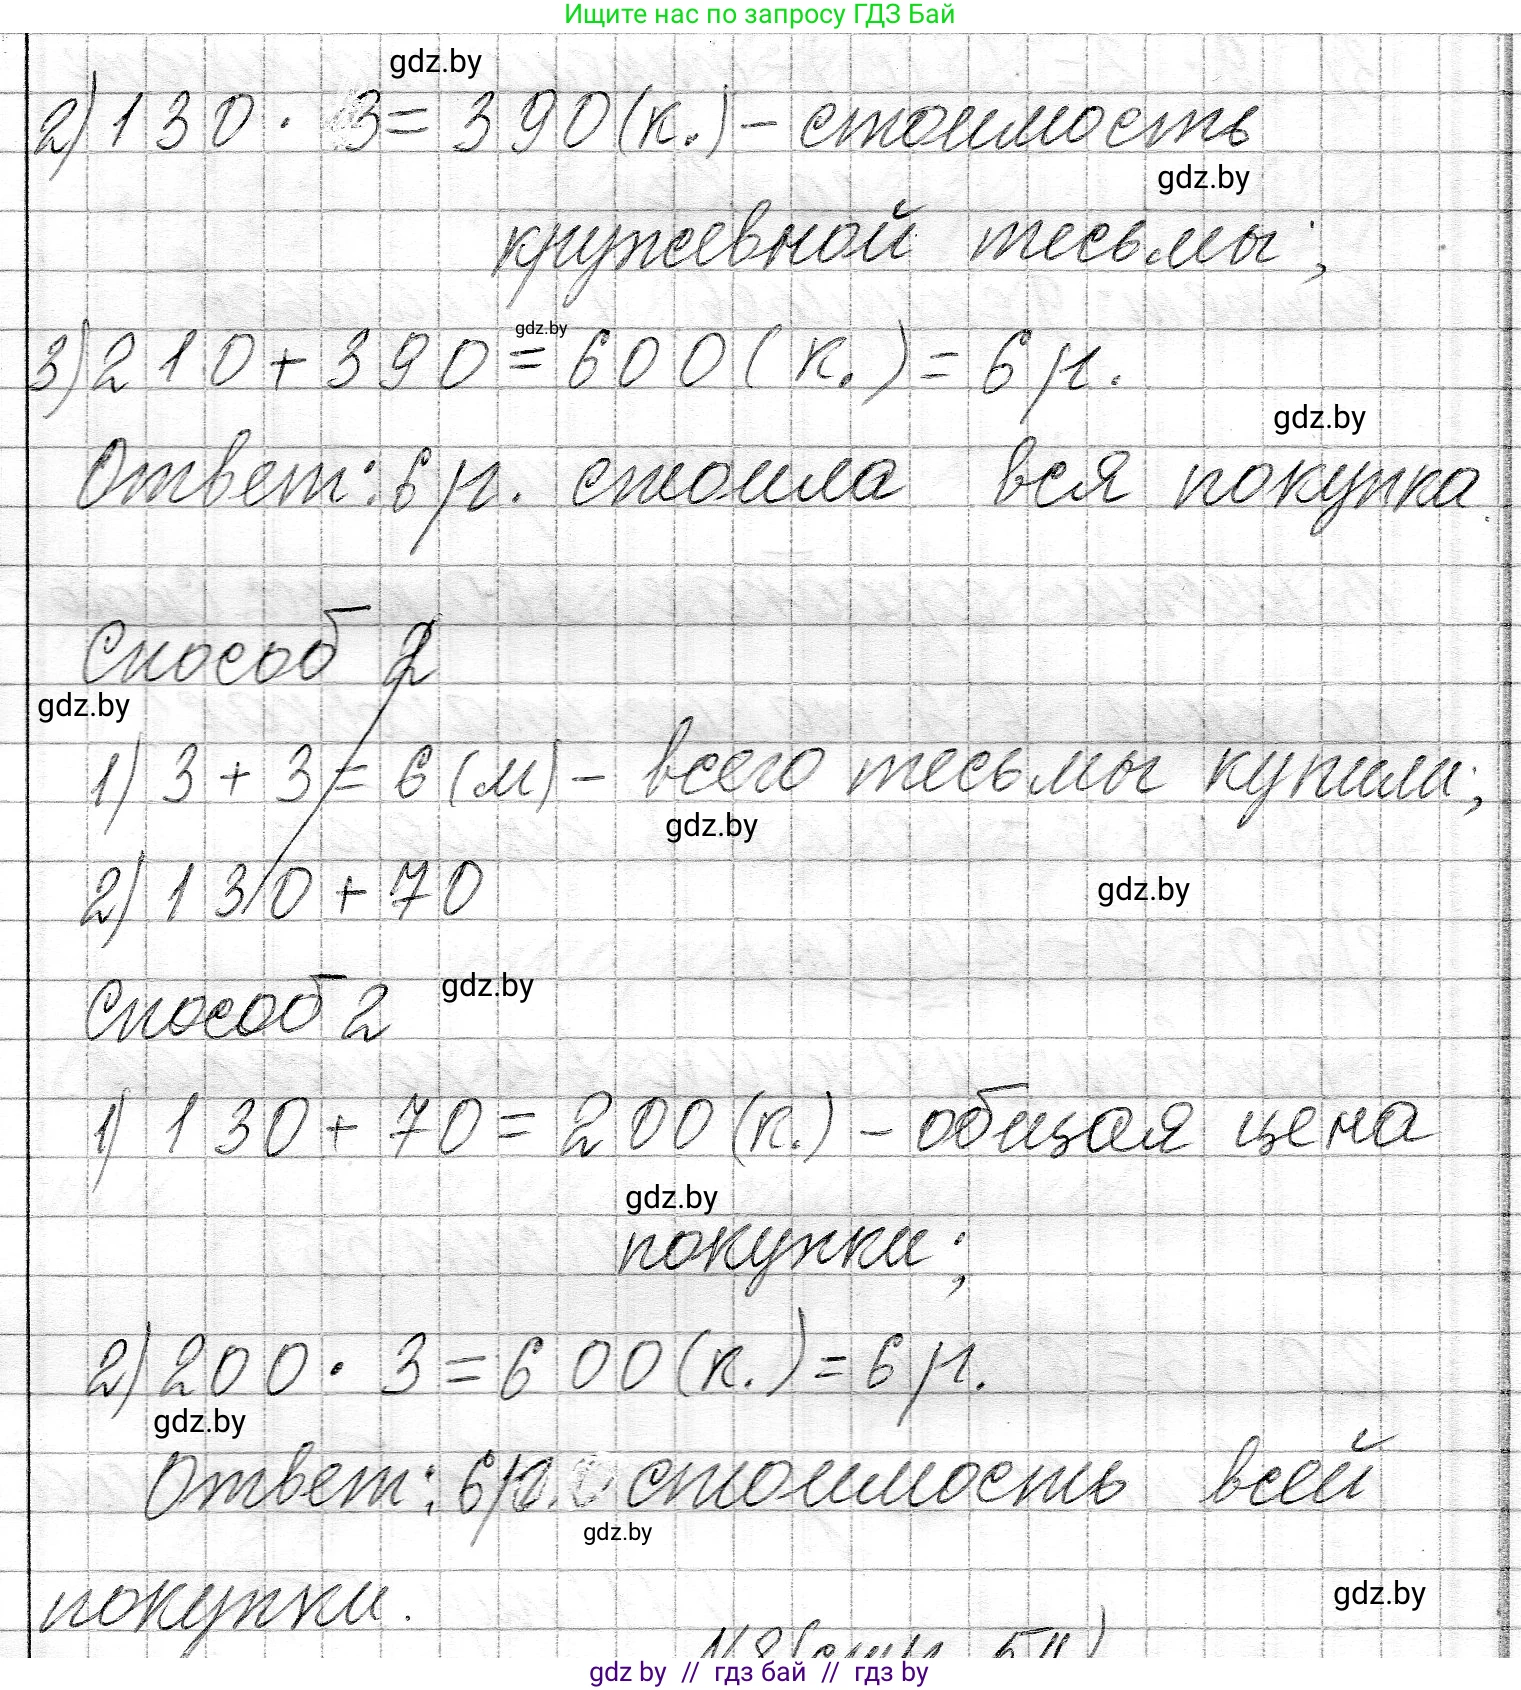 Ищите нас по запросу ГДЗ Бай
gdz.by
2) 130 · 3 = 390 (к.) – стоимость
gdz.by
кружевной тесьмы;
gdz.by
3) 210 + 390 = 600 (к.) = 6 р.
gdz.by
Ответ: 6 р. стоила вся покупка.
Способ 2
gdz.by
1) 3 + 3 = 6 (м) – всего тесьмы купили;
gdz.by
2) 130 + 70
gdz.by
Способ 2
gdz.by
1) 130 + 70 = 200 (к.) – общая цена
gdz.by
покупки;
2) 200 · 3 = 600 (к.) = 6 р.
gdz.by
Ответ: 6 р. стоимость всей
gdz.by
покупки.
gdz.by
gdz by // гдз бай // гдз by